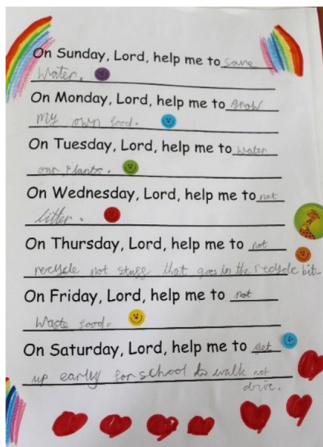 On Sunday, Lord, help me to save
water.
On Monday, Lord, help me to grow
my own food.
On Tuesday, Lord, help me to water
our plants.
On Wednesday, Lord, help me to not
litter.
On Thursday, Lord, help me to not
recycle not stuff that goes in the recycle bit.
On Friday, Lord, help me to not
waste food.
On Saturday, Lord, help me to get
up early for school to walk not
drive.